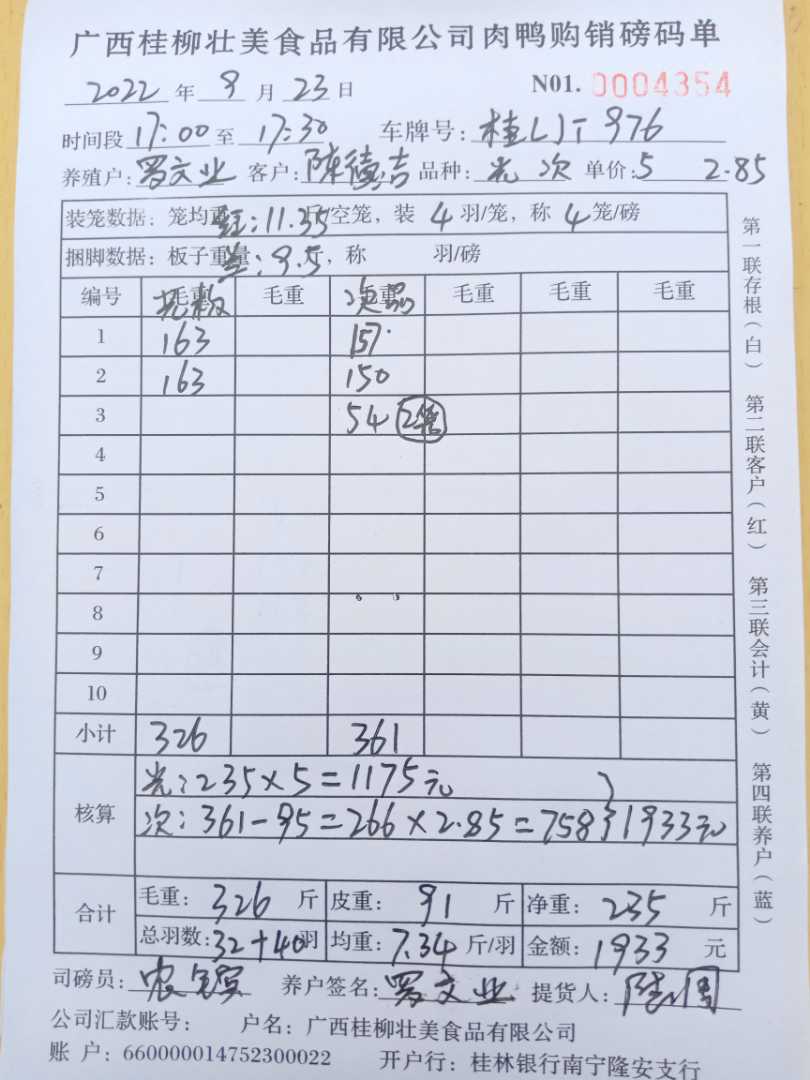 广西桂柳壮美食品有限公司肉鸭购销磅码单
2022 年 9 月 23 日 N01. 0004354
时间段 17:00 至 17:30 车牌号: 桂 976
养殖户: 罗文业 客户: 陈德吉 品种: 光 次 单价: 5 2.85
装笼数据: 笼均重 红: 11.35 斤/空笼, 装 4 羽/笼, 称 4 笼/磅
捆脚数据: 板子重量 兰: 9.5 斤, 称 羽/磅
编号 毛重 光板 毛重 毛重 次品 毛重 毛重 毛重
1 163 157
2 163 150
3 54 2笼
4
5
6
7
8
9
10
小计 326 361
核算 光: 235×5=1175元
次: 361-95=266×2.85=758 } 1933元
合计 毛重: 326 斤 皮重: 91 斤 净重: 235 斤
总羽数: 32+40 羽 均重: 7.34 斤/羽 金额: 1933 元
司磅员: 农 养户签名: 罗文业 提货人: 陆
公司汇款账号: 户名: 广西桂柳壮美食品有限公司
账 户: 660000014752300022 开户行: 桂林银行南宁隆安支行
第一联存根(白) 第二联客户(红) 第三联会计(黄) 第四联养户(蓝)